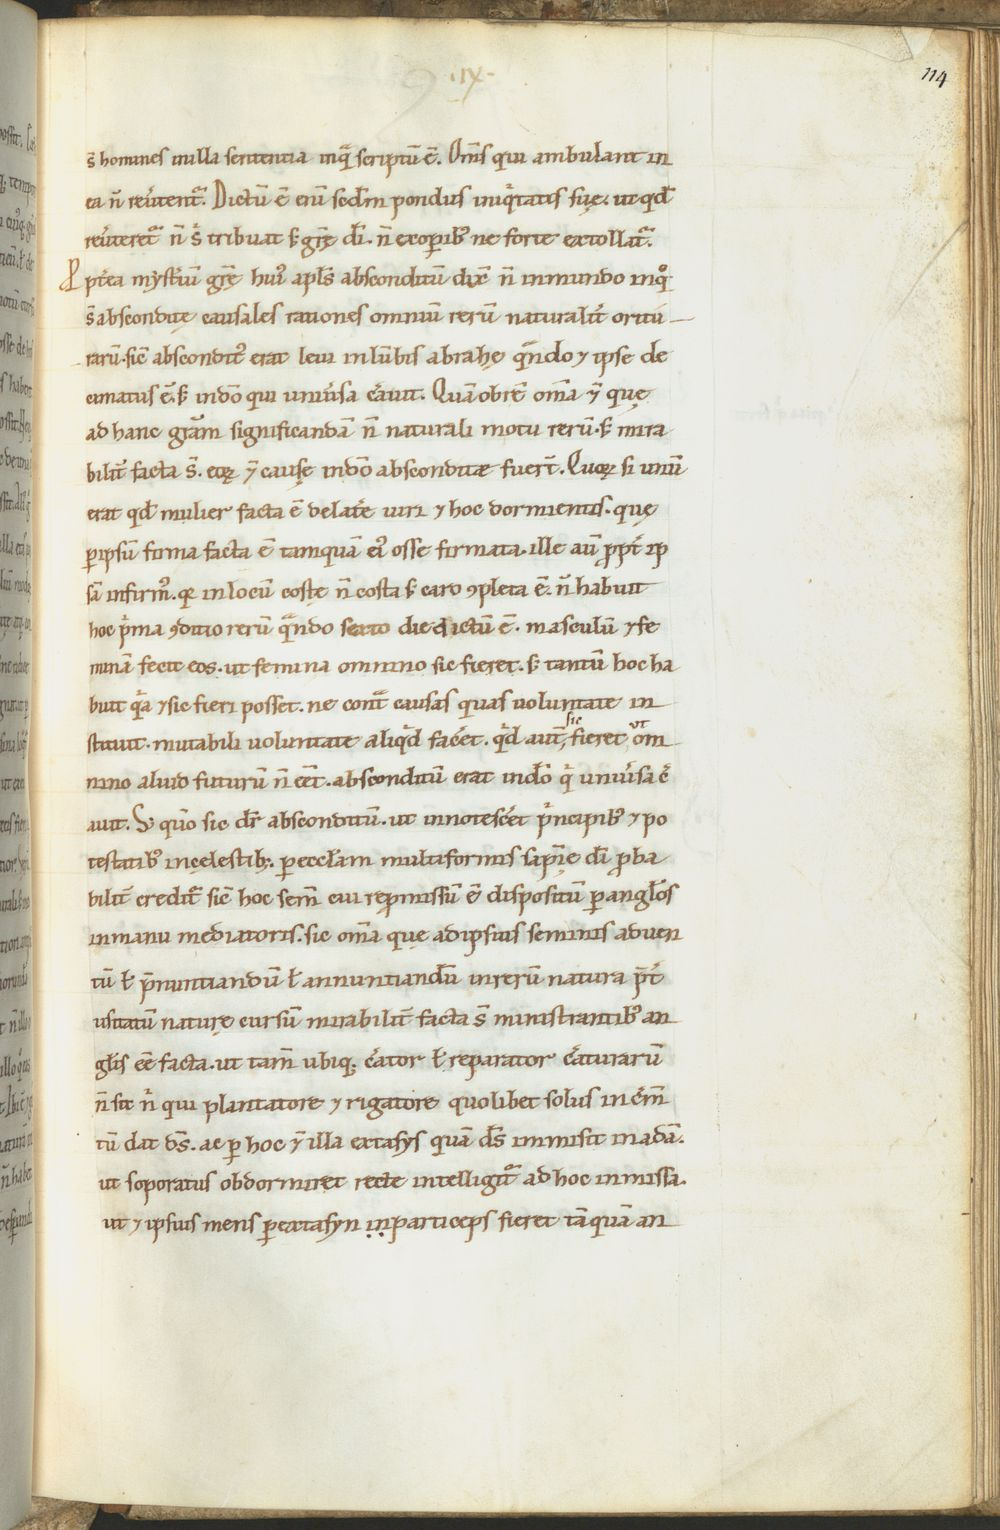 .IX.
114
s̄ homines in illa sententia in q̄ scriptū ē. Om̄s qui ambulant in
ea n̄ reůtent᷑. Dictū ē enī scdm pondus iniqͥtatis suę. ut qđ
reůteret᷑ n̄ s̓ tribuat s̓ gr̄ę dī. n̄ ex operibꝰ ne forte extollat᷑.
Ppt̓ea mysťiū gr̄ę huiꝰ apl̄s absconditū dixͭ n̄ in mundo in qͦ
s̄ absconditę causales rationes omniū rerū naturalit̓ oritu
rarū. sic̄ absconditꝰ erat leui in lūbis abrahę qn̄do ⁊ ipse de
cimatus ē. s̓ in dō qui uniůsa c̓auit. Quā obrē om̄a ⁊̄ quę
ad hanc gr̄am significandā n̄ naturali motu rerū. s̓ mira
bilit̓ facta s̄. eoꝝ ⁊̄ causę in dō absconditæ fuer̄t. Quoꝝ si unū
erat qđ mulier facta ē de lat̓e uiri ⁊ hoc dormientis. quę
ꝑ ipsū firma facta ē tamquā eiꝰ osse firmata. ille aū ꝓpt̓ ip
sā infirmꝰ. qr in locū costę n̄ costa s̓ caro ꝯpleta ē. n̄ habuit
hoc pͥma ꝯditio rerū qn̄do sexto die dictū ē. masculū ⁊ fe
minā fecit eos. ut femina omnino sic fieret. s̓ tantū hoc ha
buit qͥa ⁊ sic fieri posset. ne cont̄ causas quas uoluntate in
stituit. mutabili uoluntate aliqͥd fac̓et. qͥd aut̄ sic fieret ut om
nino aliud futurū n̄ eēt. absconditū erat in dō qͥ uniůsa c̓
auit. S; qūo sic dr̄ absconditū. ut innotesc̓et pͥncipibꝰ ⁊ po
testatibꝰ in cęlestibꝫ. ꝑ eccl̄am multiformis sapīę dī ꝓba
bilit̓ credit᷑ sic̄ hoc sem̄ cui reꝓmissū ē dispositū ꝑ angl̄os
in manu mediatoris. sic om̄a que ad ipsius seminis aduen
tū ł p̄nuntiandū ł annuntiandū in rerū natura p̄t̓
usitatū naturę cursū mirabilit̓ facta s̄ ministrantibꝰ an
gl̄is eē facta. ut tam̄ ubiqꝫ c̓ator ł reparator c̓aturarū
n̄ sit nͥ qui plantatore ⁊ rigatore quolibet solus inc̓m̄
tū dat ds̄. ac ꝑ hoc ⁊̄ illa extasys quā ds̄ inmisit in adā.
ut soporatus obdormiret recte intelligit᷑ ad hoc inmissa.
ut ⁊ ipsius mens ꝑ extasyn inparticeps fieret tāquā an